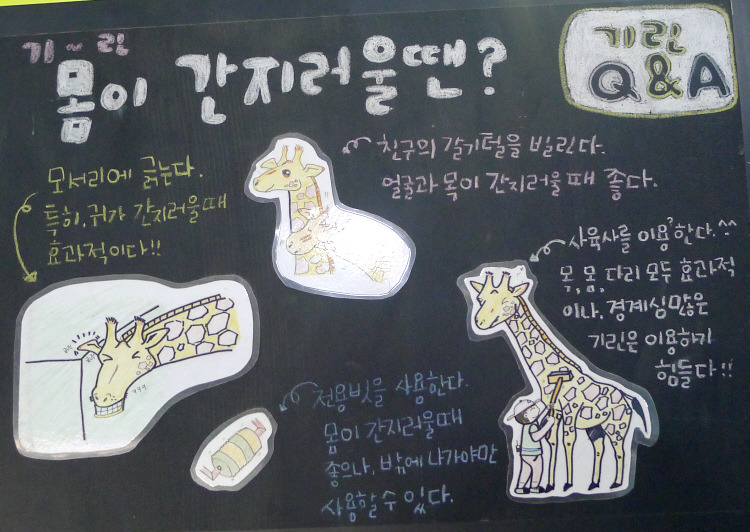 기~린
몸이 간지러울땐?
기린
Q&A
모서리에 긁는다.
특히, 귀가 간지러울때
효과적이다!!
친구의 갈기털을 빌린다.
얼굴과 목이 간지러울때 좋다.
사육사를 이용?한다.^^
목, 몸, 다리 모두 효과적
이나, 경계심많은
기린은 이용하기
힘들다!!
전용빗을 사용한다.
몸이 간지러울때
좋으나, 밖에 나가야만
사용할 수 있다.
ㅋㅋㅋ